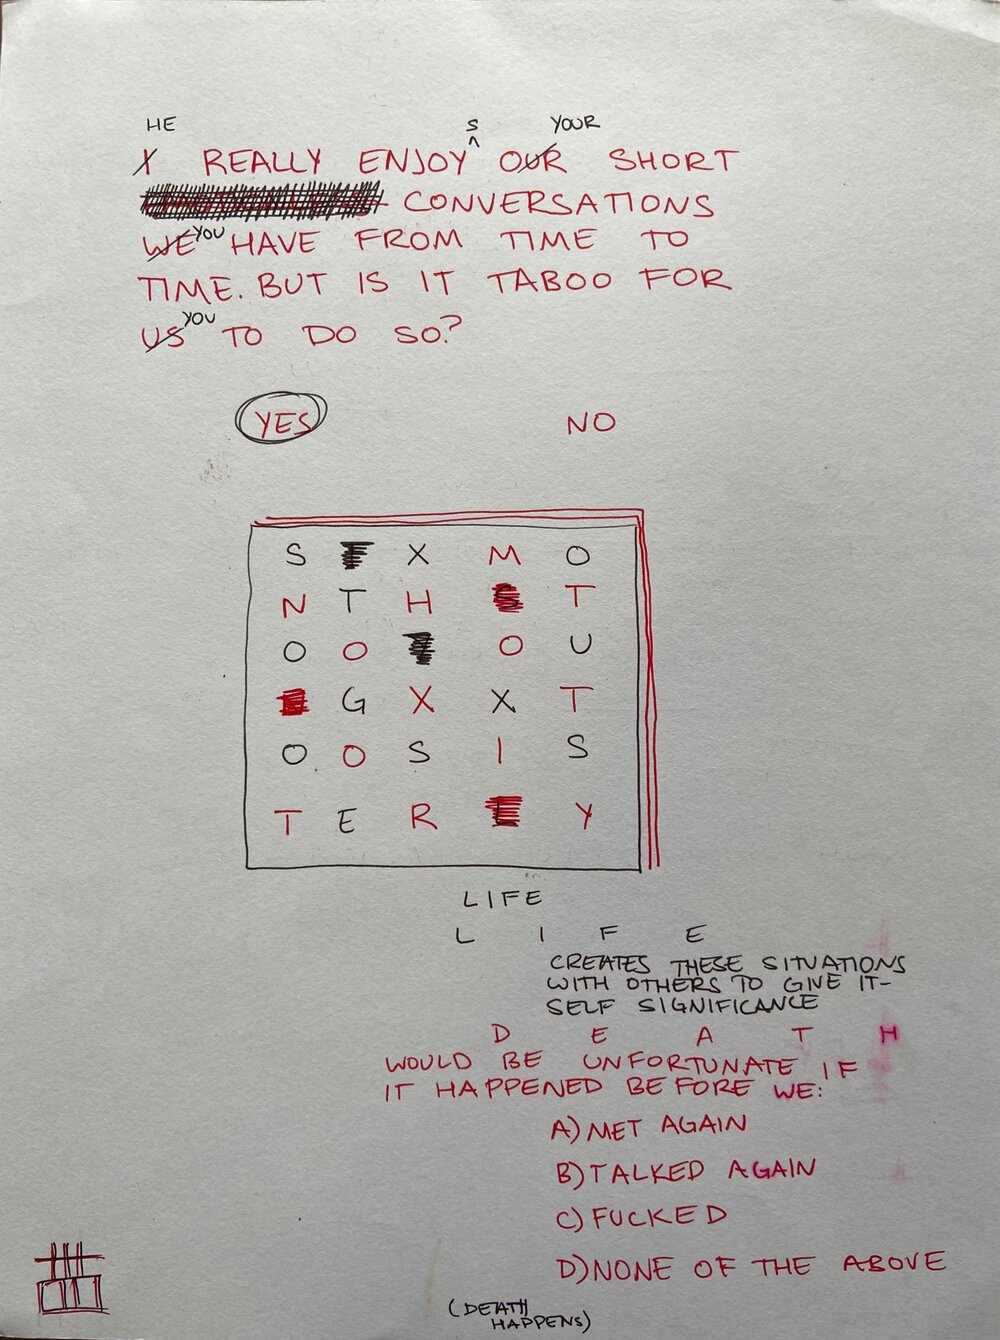 HE S YOUR
I REALLY ENJOY OUR SHORT
CONVERSATIONS
WE YOU HAVE FROM TIME TO
TIME. BUT IS IT TABOO FOR
US YOU TO DO SO?
YES NO
S X M O
N T H S T
O O O U
G X X T
O O S I S
T E R Y
LIFE
L I F E
CREATES THESE SITUATIONS
WITH OTHERS TO GIVE IT-
SELF SIGNIFICANCE
D E A T H
WOULD BE UNFORTUNATE IF
IT HAPPENED BEFORE WE:
A) MET AGAIN
B) TALKED AGAIN
C) FUCKED
D) NONE OF THE ABOVE
(DEATH
HAPPENS)